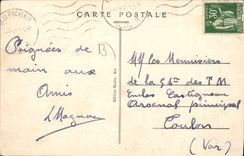 CARTE POSTALE
Poignées de
main aux
Amis
L Magnan
B
MM les Menuisiers
de la 5ème des T M
Enclos Castigneau
Arsenal principal
Toulon
(Var)